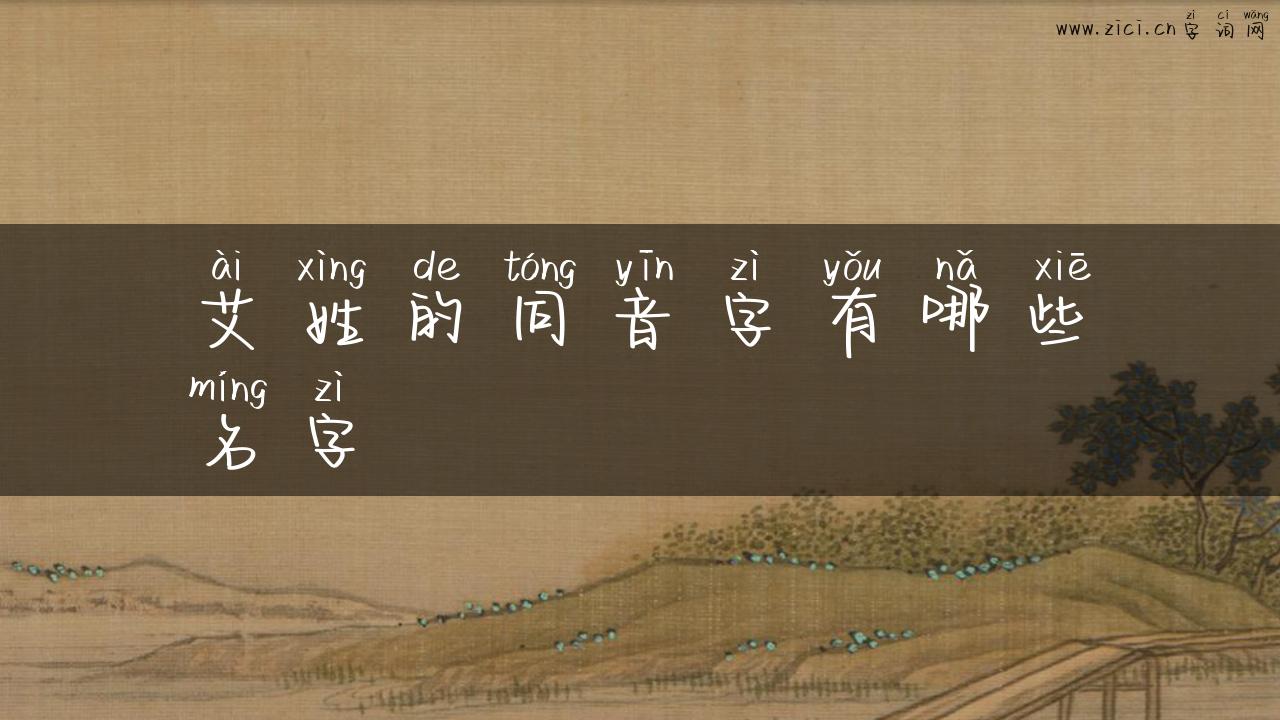 zì cí wǎng
www.zici.cn字词网
ài xìng de tóng yīn zì yǒu nǎ xiē
艾姓的同音字有哪些
míng zì
名字